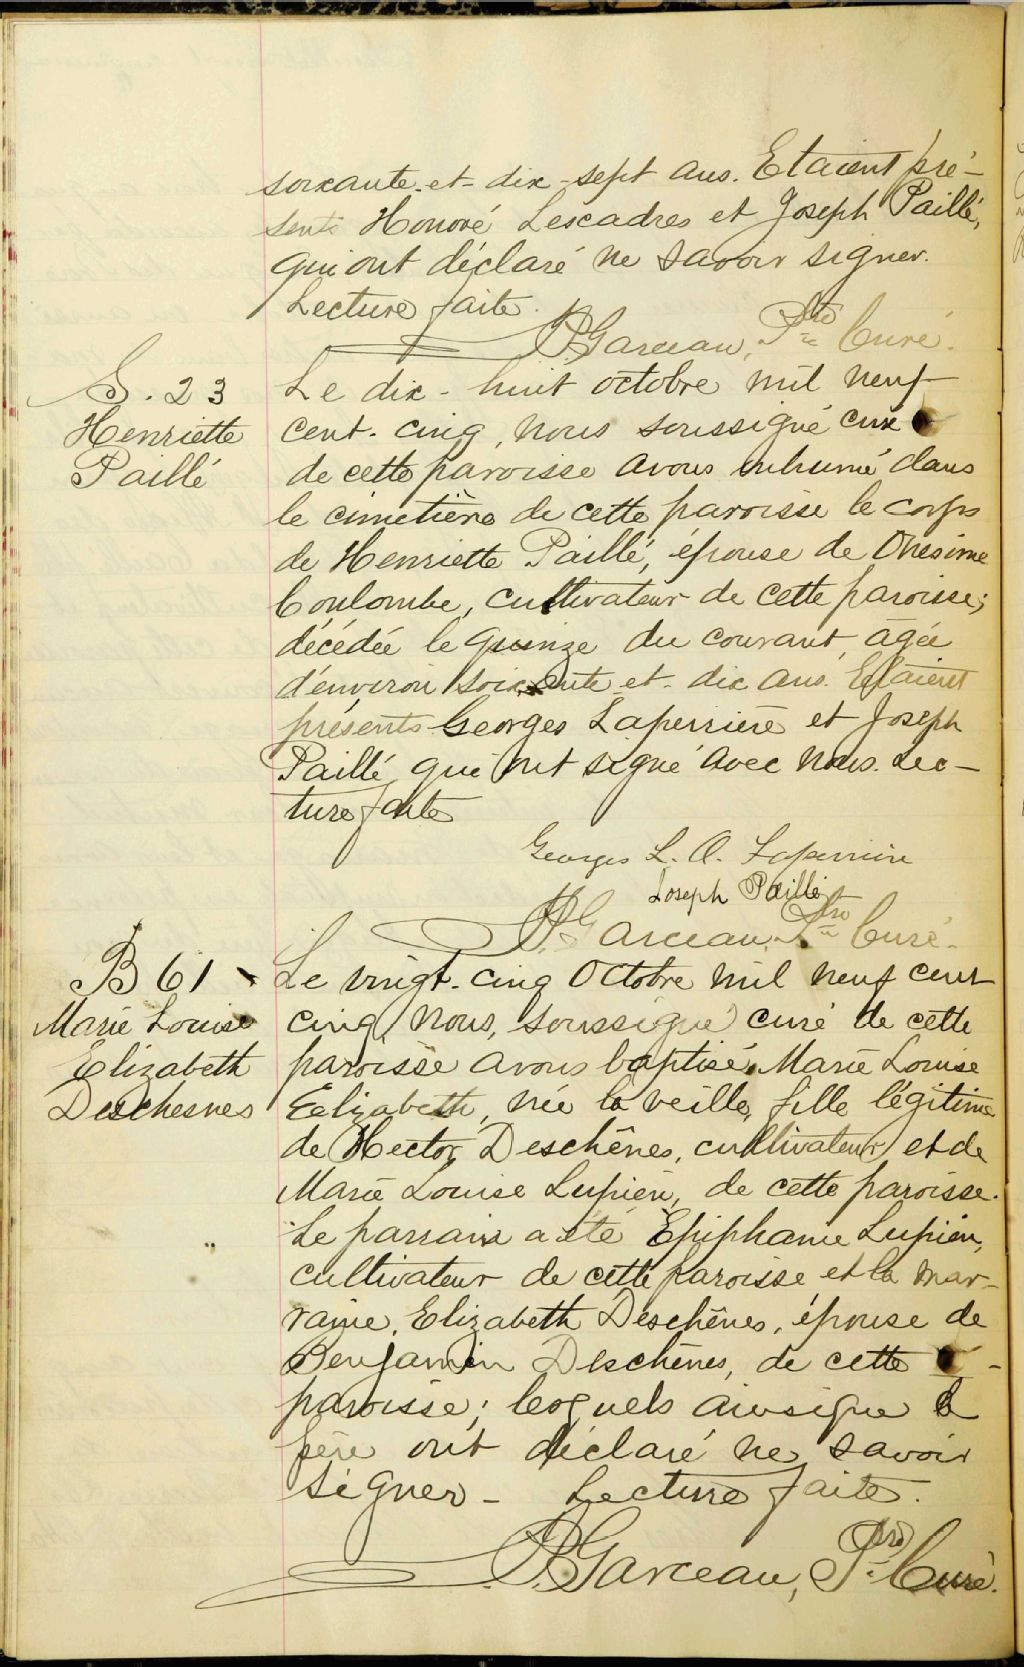 soixante-et-dix-sept ans. Etaient pré-
sents Honoré Lescadres et Joseph Paillé,
qui ont déclaré ne savoir signer.
Lecture faite.
P. Garceau, Ptre Curé.
S. 23
Henriette
Paillé
Le dix-huit octobre mil neuf
cent-cinq, nous soussigné curé
de cette paroisse avons inhumé dans
le cimetière de cette paroisse le corps
de Henriette Paillé, épouse de Onésime
Coulombe, cultivateur de cette paroisse;
décédée le quinze du courant, âgée
d'environ soixante-et-dix ans. Etaient
présents Georges Laperrière et Joseph
Paillé qui ont signé avec nous. Lec-
ture faite
Georges L. O. Laperrière
Joseph Paillé
P. Garceau, Ptre Curé.
B 61
Marie Louise
Elizabeth
Deschesnes
Le vingt-cinq Octobre mil neuf cent
cinq, nous, soussigné curé de cette
paroisse avons baptisé Marie Louise
Eelizabeth, née la veille, fille légitime
de Hector Deschênes, cultivateur et de
Marie Louise Lupien, de cette paroisse.
Le parrain a été Epiphane Lupien,
cultivateur de cette paroisse et la mar-
raine, Elizabeth Deschênes, épouse de
Benjamin Deschênes, de cette -
paroisse; lesquels ainsi que le
père ont déclaré ne savoir
signer - Lecture faite.
P. Garceau, Ptre Curé.